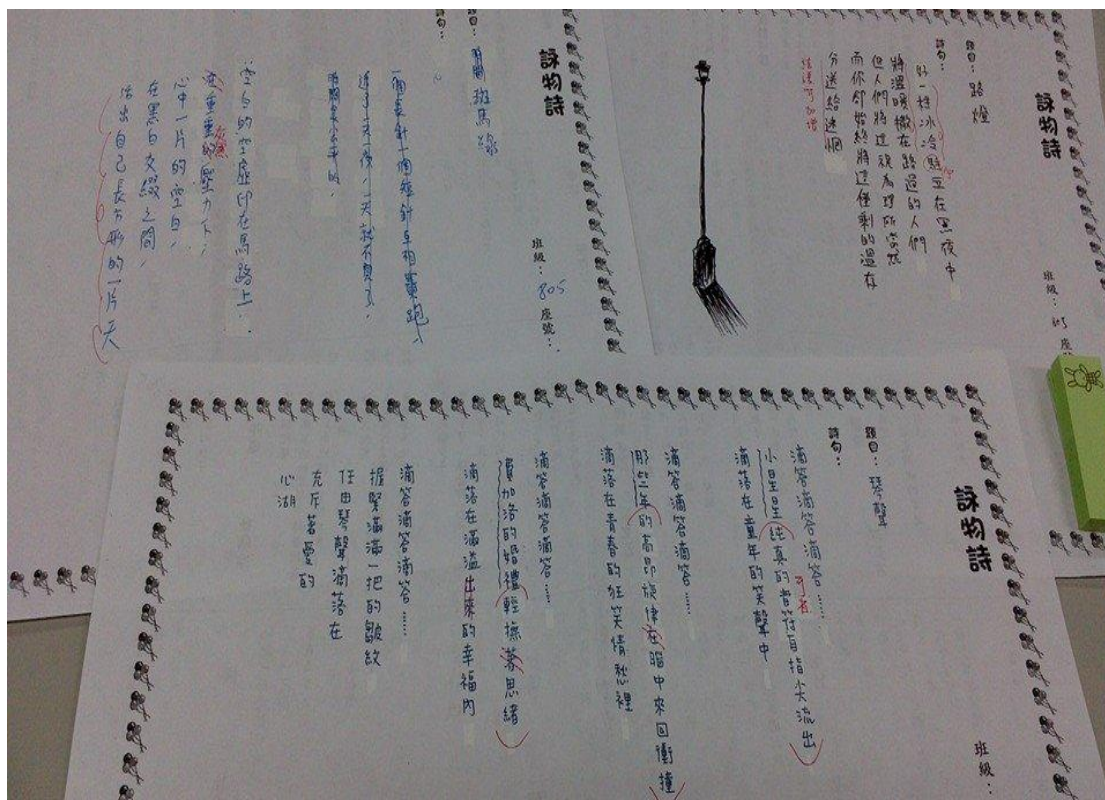 詠物詩
班級：
題目：路燈
詩句：
好一棵冰冷
在黑夜中
將溫暖撒在路過的人們
但人們將這視為理所當然
而你卻始終將這僅剩的溫存
分送給迷惘
詠物詩
班級：805 座號：
題目：時間 斑馬線
詩句：
一個長針一個短針互相賽跑，
過了一天
空白的空虛印在馬路上．
在重重的壓力下，
心中一片的空白，
在黑白交綴之間，
活出自己長方形的一片天
詠物詩
班級：
題目：琴聲
詩句：
滴答滴答滴答……
小星星純真的音符自指尖流出
可省
滴落在童年的笑聲中
滴答滴答滴答……
那些年的高昂旋律在腦中來回衝撞
滴落在青春的狂笑情愁裡
滴答滴答滴答……
費加洛的婚禮輕撫著思緒
滴落在滿溢出來的幸福內
滴答滴答滴答……
握緊滿滿一把的皺紋
任由琴聲滴落在
充斥著愛的
心湖